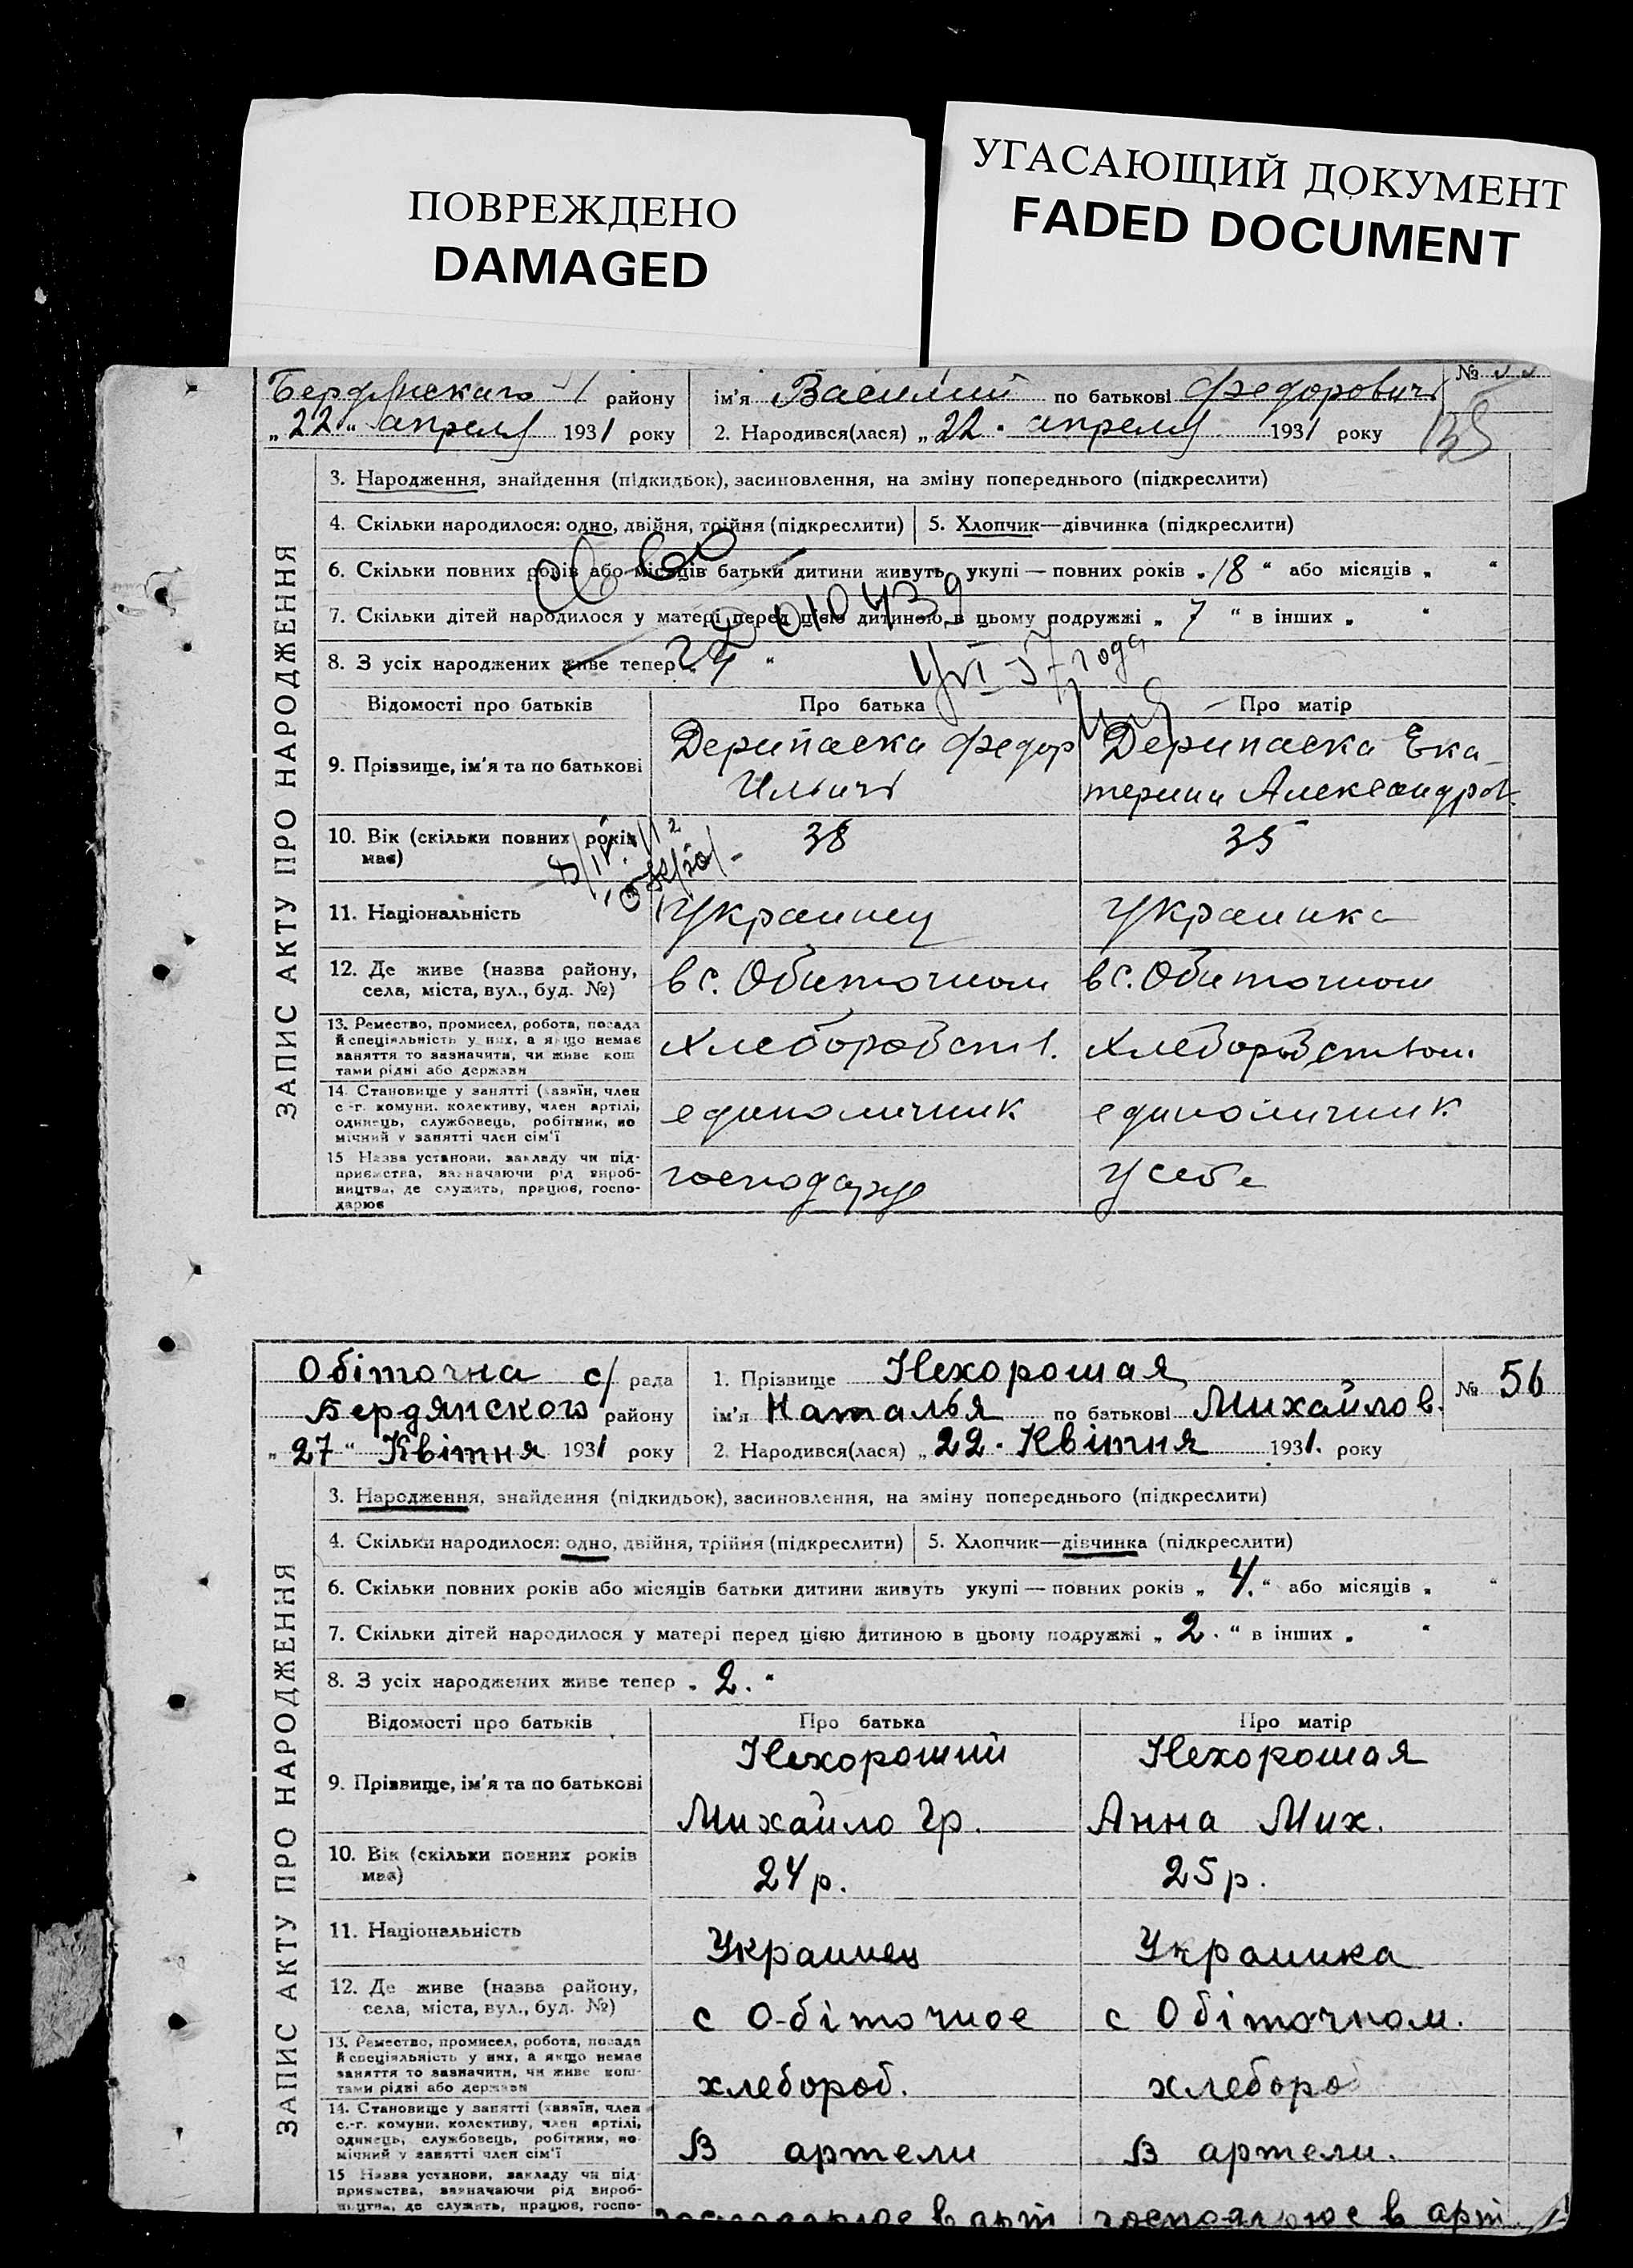 ПОВРЕЖДЕНО
DAMAGED
УГАСАЮЩИЙ ДОКУМЕНТ
FADED DOCUMENT
Бердянскаго району
ім'я Василий по батькові Федоровичъ
№
„22“ апреля 1931 року
2. Народився(лася) „22. апреля 1931 року
ЗАПИС АКТУ ПРО НАРОДЖЕННЯ
3. Народження, знайдення (підкидьок), засиновлення, на зміну попереднього (підкреслити)
4. Скільки народилося: одно, двійня, трійня (підкреслити)
5. Хлопчик—дівчинка (підкреслити)
6. Скільки повних років або місяців батьки дитини живуть укупі — повних років „18“ або місяців „ “
7. Скільки дітей народилося у матері перед цією дитиною в цьому подружжі „7“ в інших „ “
8. З усіх народжених живе тепер „ “
010439
года
Відомості про батьків
Про батька
Про матір
9. Прізвище, ім'я та по батькові
Дерипаска Федор
Ильичъ
Дерипаска Ека-
терина Александров.
10. Вік (скільки повних років має)
38
35
11. Національність
Украинец
Украинка
12. Де живе (назва району, села, міста, вул., буд. №)
в с. Обиточном
в с. Обиточном
13. Ремество, промисел, робота, посада й спеціяльність у них, а якщо немає заняття то зазначити, чи живе коштами рідні або держави
Хлеборобств.
Хлеборобством.
14. Становище у занятті (хазяїн, член с.-г. комуни, колективу, член артілі, одинець, службовець, робітник, помічний у занятті член сім'ї
единоличник
единоличник
15 Назва установи, закладу чи підприємства, зазначаючи рід виробництва, де служить, працює, господарює
господарує
у себе
Обіточна с/ рада
1. Прізвище Нехорошая
№ 56
Бердянского району
ім'я Наталья по батькові Михайлов.
„27“ Квітня 1931 року
2. Народився(лася) „22. Квітня 1931. року
ЗАПИС АКТУ ПРО НАРОДЖЕННЯ
3. Народження, знайдення (підкидьок), засиновлення, на зміну попереднього (підкреслити)
4. Скільки народилося: одно, двійня, трійня (підкреслити)
5. Хлопчик—дівчинка (підкреслити)
6. Скільки повних років або місяців батьки дитини живуть укупі — повних років „4.“ або місяців „ “
7. Скільки дітей народилося у матері перед цією дитиною в цьому подружжі „2.“ в інших „ “
8. З усіх народжених живе тепер „2.“
Відомості про батьків
Про батька
Про матір
9. Прізвище, ім'я та по батькові
Нехороший
Михайло Гр.
Нехорошая
Анна Мих.
10. Вік (скільки повних років має)
24 р.
25 р.
11. Національність
Украинец
Украинка
12. Де живе (назва району, села, міста, вул., буд. №)
с Обіточное
с Обіточном.
13. Ремество, промисел, робота, посада й спеціяльність у них, а якщо немає заняття то зазначити, чи живе коштами рідні або держави
хлебороб.
хлебороб
14. Становище у занятті (хазяїн, член с.-г. комуни, колективу, член артілі, одинець, службовець, робітник, помічний у занятті член сім'ї
В артели
В артели.
15 Назва установи, закладу чи підприємства, зазначаючи рід виробництва, де служить, працює, госпо-
господарює в арт
господарює в арт.